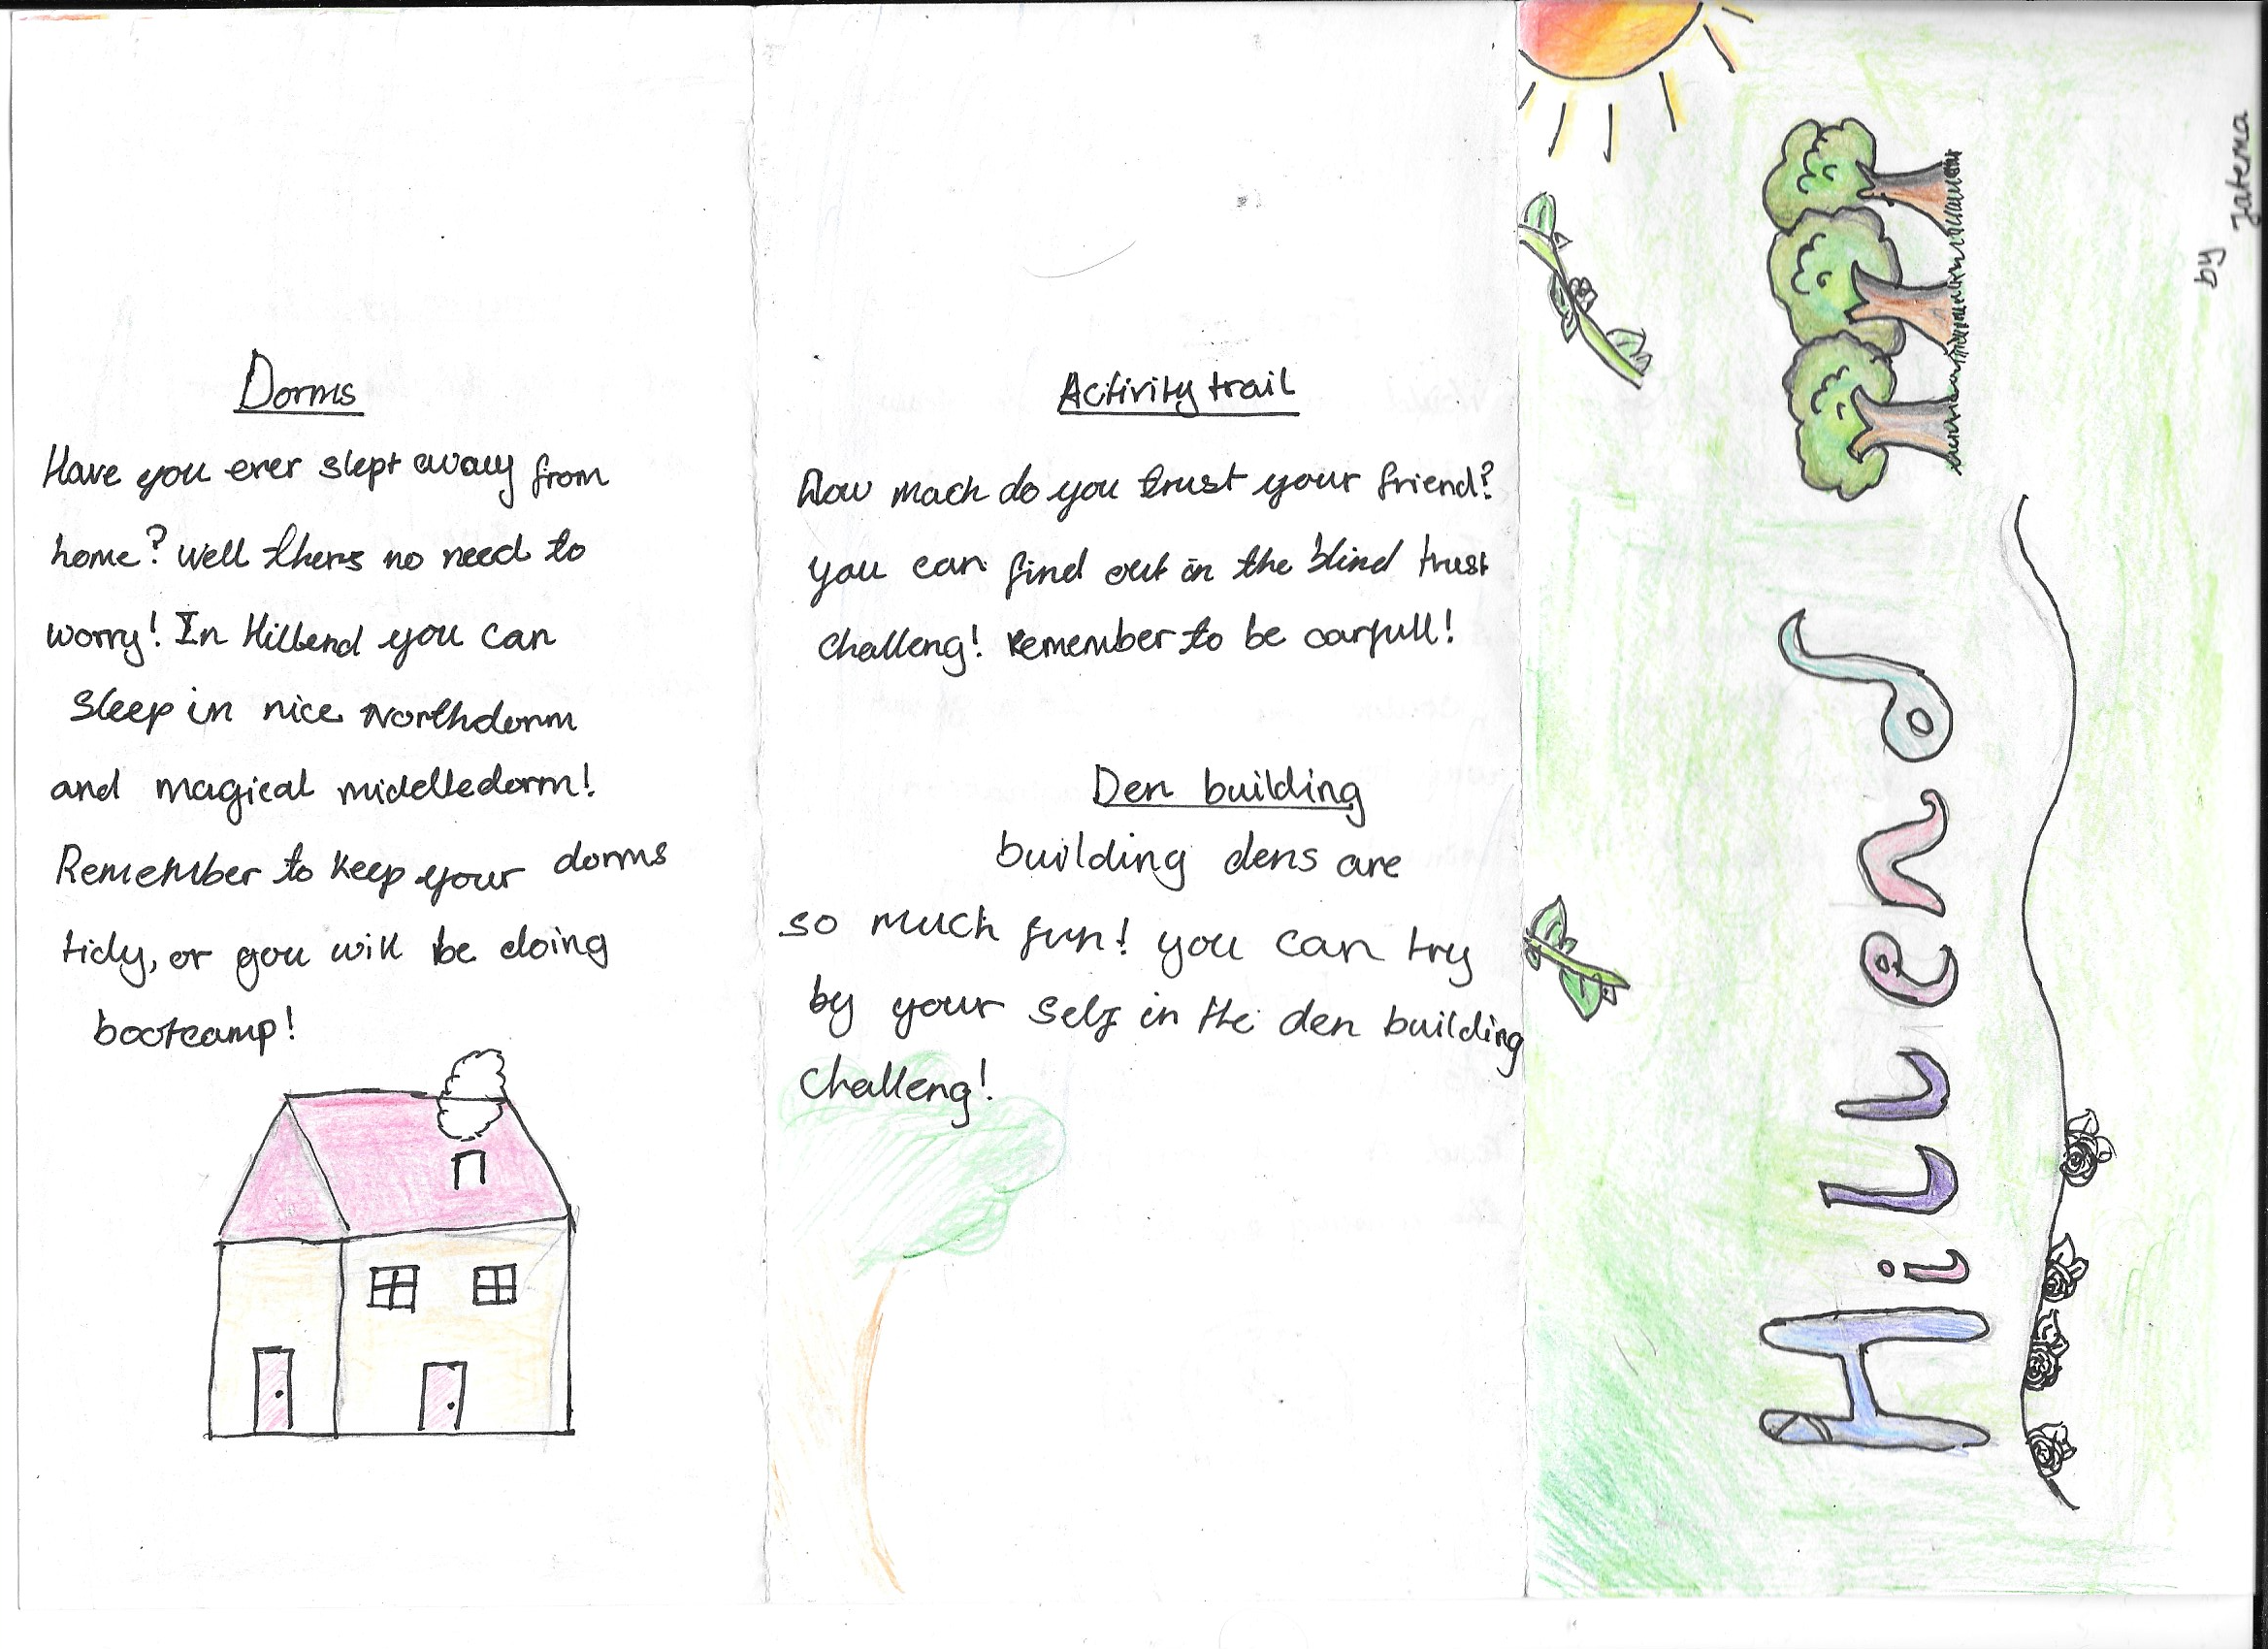 Dorms
Have you ever slept away from
home? Well thers no need to
worry! In Hillend you can
sleep in nice Northdorm
and magical middledorm!
Remember to keep your dorms
tidy, or you will be doing
bootcamp!
Activity trail
How mach do you trust your friend?
you can find out in the blind trust
challeng! Remember to be carfull!
Den building
building dens are
so much fun! you can try
by your self in the den building
challeng!
Hillend
by